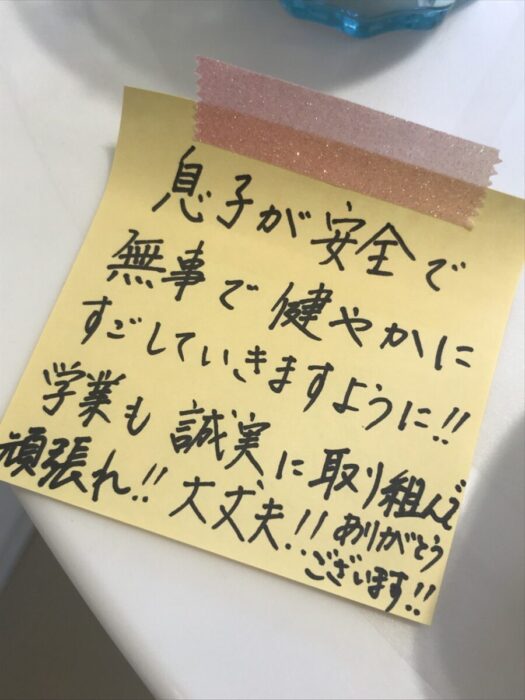 息子が安全で
無事で健やかに
すごしていきますように!!
学業も誠実に取り組んで
頑張れ!! 大丈夫!! ありがとう
ございます!!